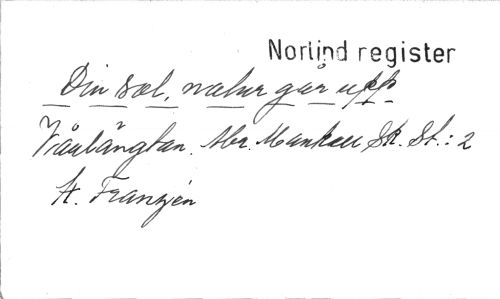 Norlind register
Din sol, natur går upp
Vårlängtan. Abr. Mankell Sk. St.: 2
H. Franzén